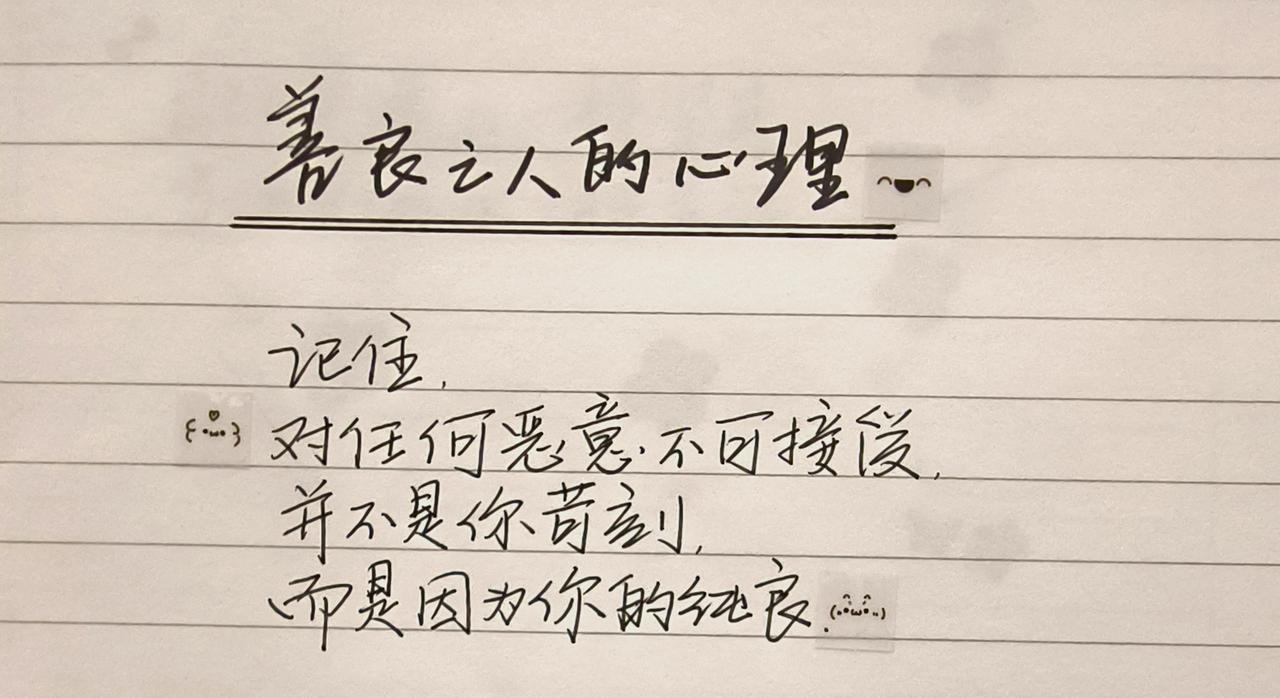 善良之人的心理
记住,
对任何恶意不可接受,
并不是你苛刻,
而是因为你的纯良.